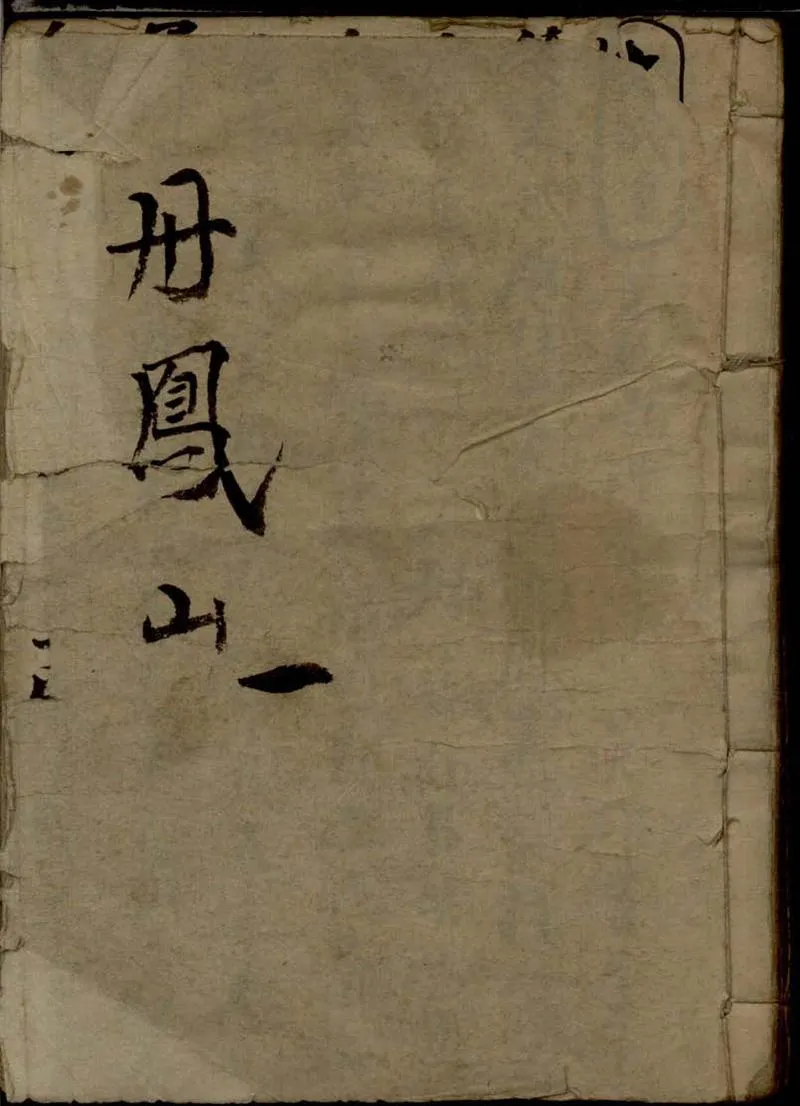 丹鳳山
一